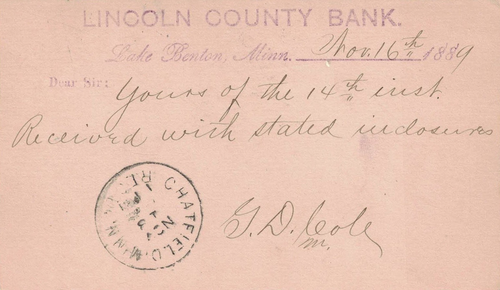 LINCOLN COUNTY BANK.
Lake Benton, Minn. Nov. 16th 1889
Dear Sir: Yours of the 14th inst.
Received with stated inclosures
G. D. Cole
CHATFIELD, MINN.
REC'D
NOV